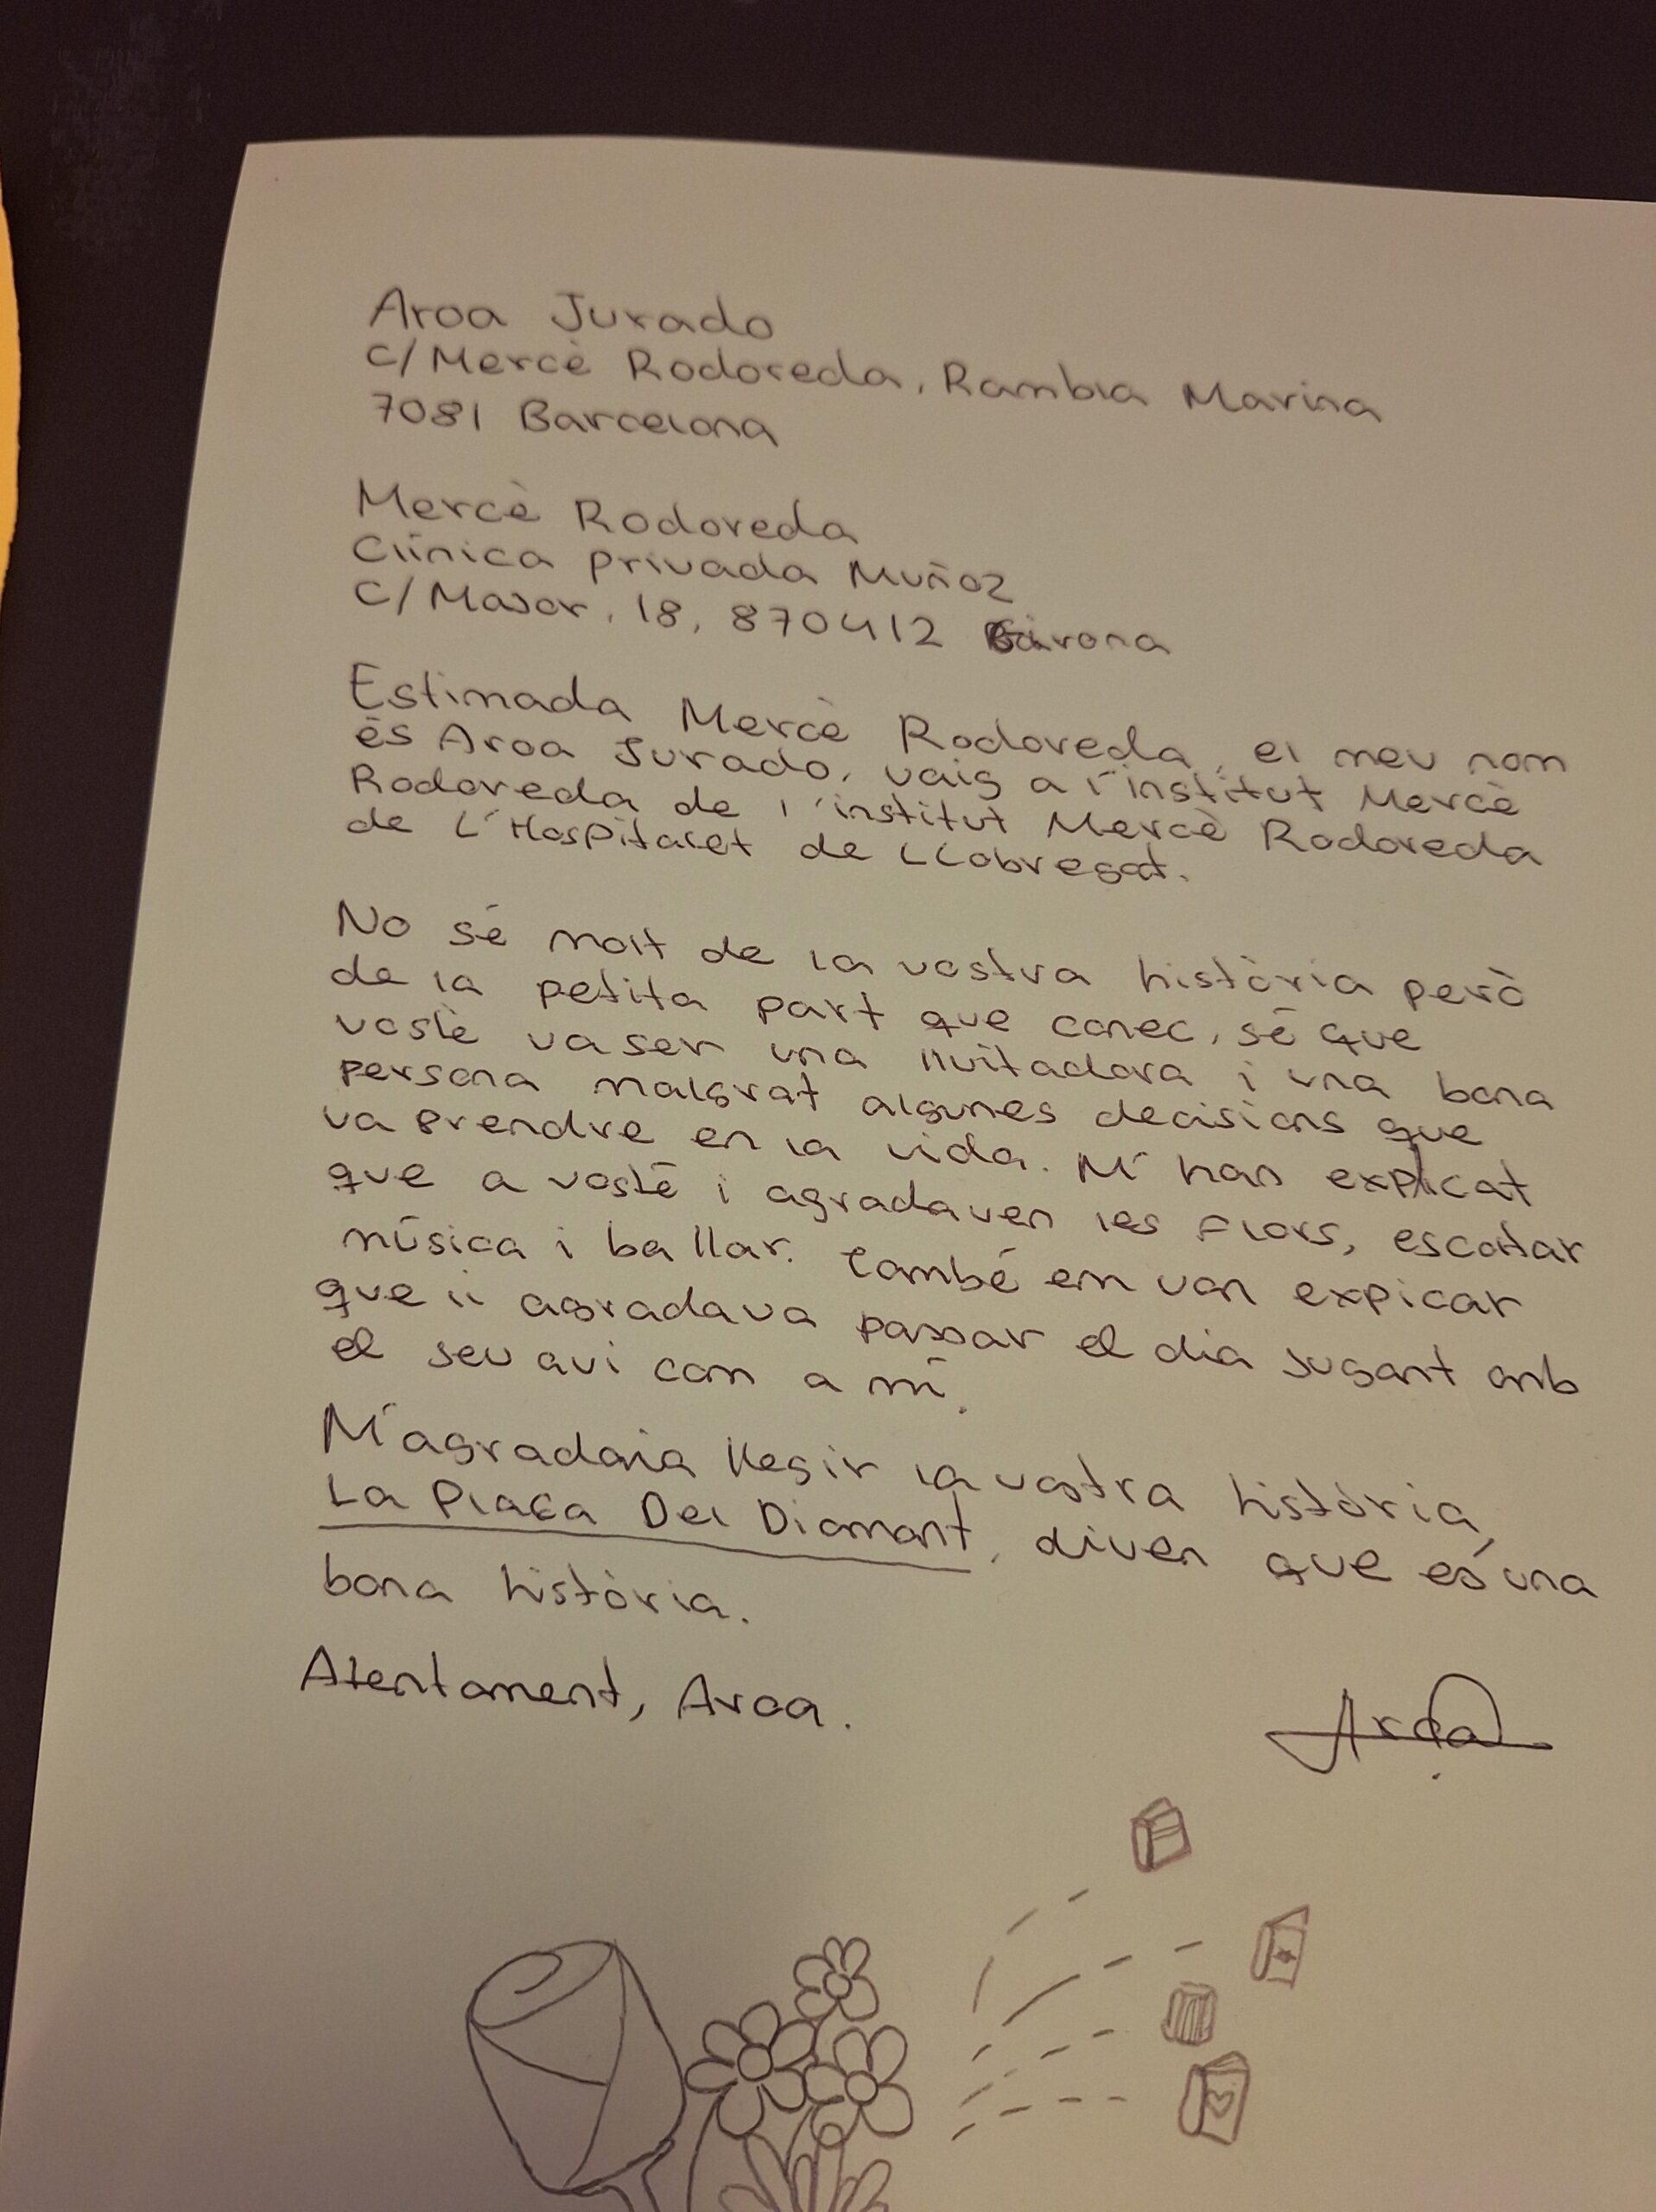 Aroa Jurado
C/Mercè Rodoreda, Rambla Marina
7081 Barcelona
Mercè Rodoreda
Clínica privada Muñoz
C/Major, 18, 870412 Girona
Estimada Mercè Rodoreda, el meu nom
és Aroa Jurado, vaig a l'institut Mercè
Rodoreda de l'institut Mercè Rodoreda
de L'Hospitalet de LLobregat.
No sé molt de la vostra història però
de la petita part que conec, sé que
vostè va ser una lluitadora i una bona
persona malgrat algunes decisions que
va prendre en la vida. M'han explicat
que a vosté i agradaven les flors, escoltar
música i ballar. També em van expicar
que li agradava passar el dia jugant amb
el seu avi com a mí.
M'agradaria llegir la vostra història,
La Plaça Del Diamant, diuen que és una
bona història.
Atentament, Aroa.
Aroa